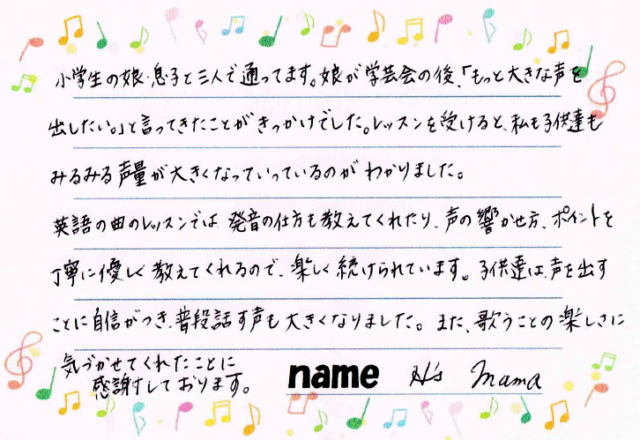 小学生の娘・息子と三人で通ってます。娘が学芸会の後、「もっと大きな声を
出したい。」と言ってきたことがきっかけでした。レッスンを受けると、私も子供達も
みるみる声量が大きくなっていっているのがわかりました。
英語の曲のレッスンでは、発音の仕方も教えてくれたり、声の響かせ方、ポイントを
丁寧に優しく教えてくれるので、楽しく続けられています。子供達は、声を出す
ことに自信がつき、普段話す声も大きくなりました。また、歌うことの楽しさに
気づかせてくれたことに
感謝しております。
name H's mama